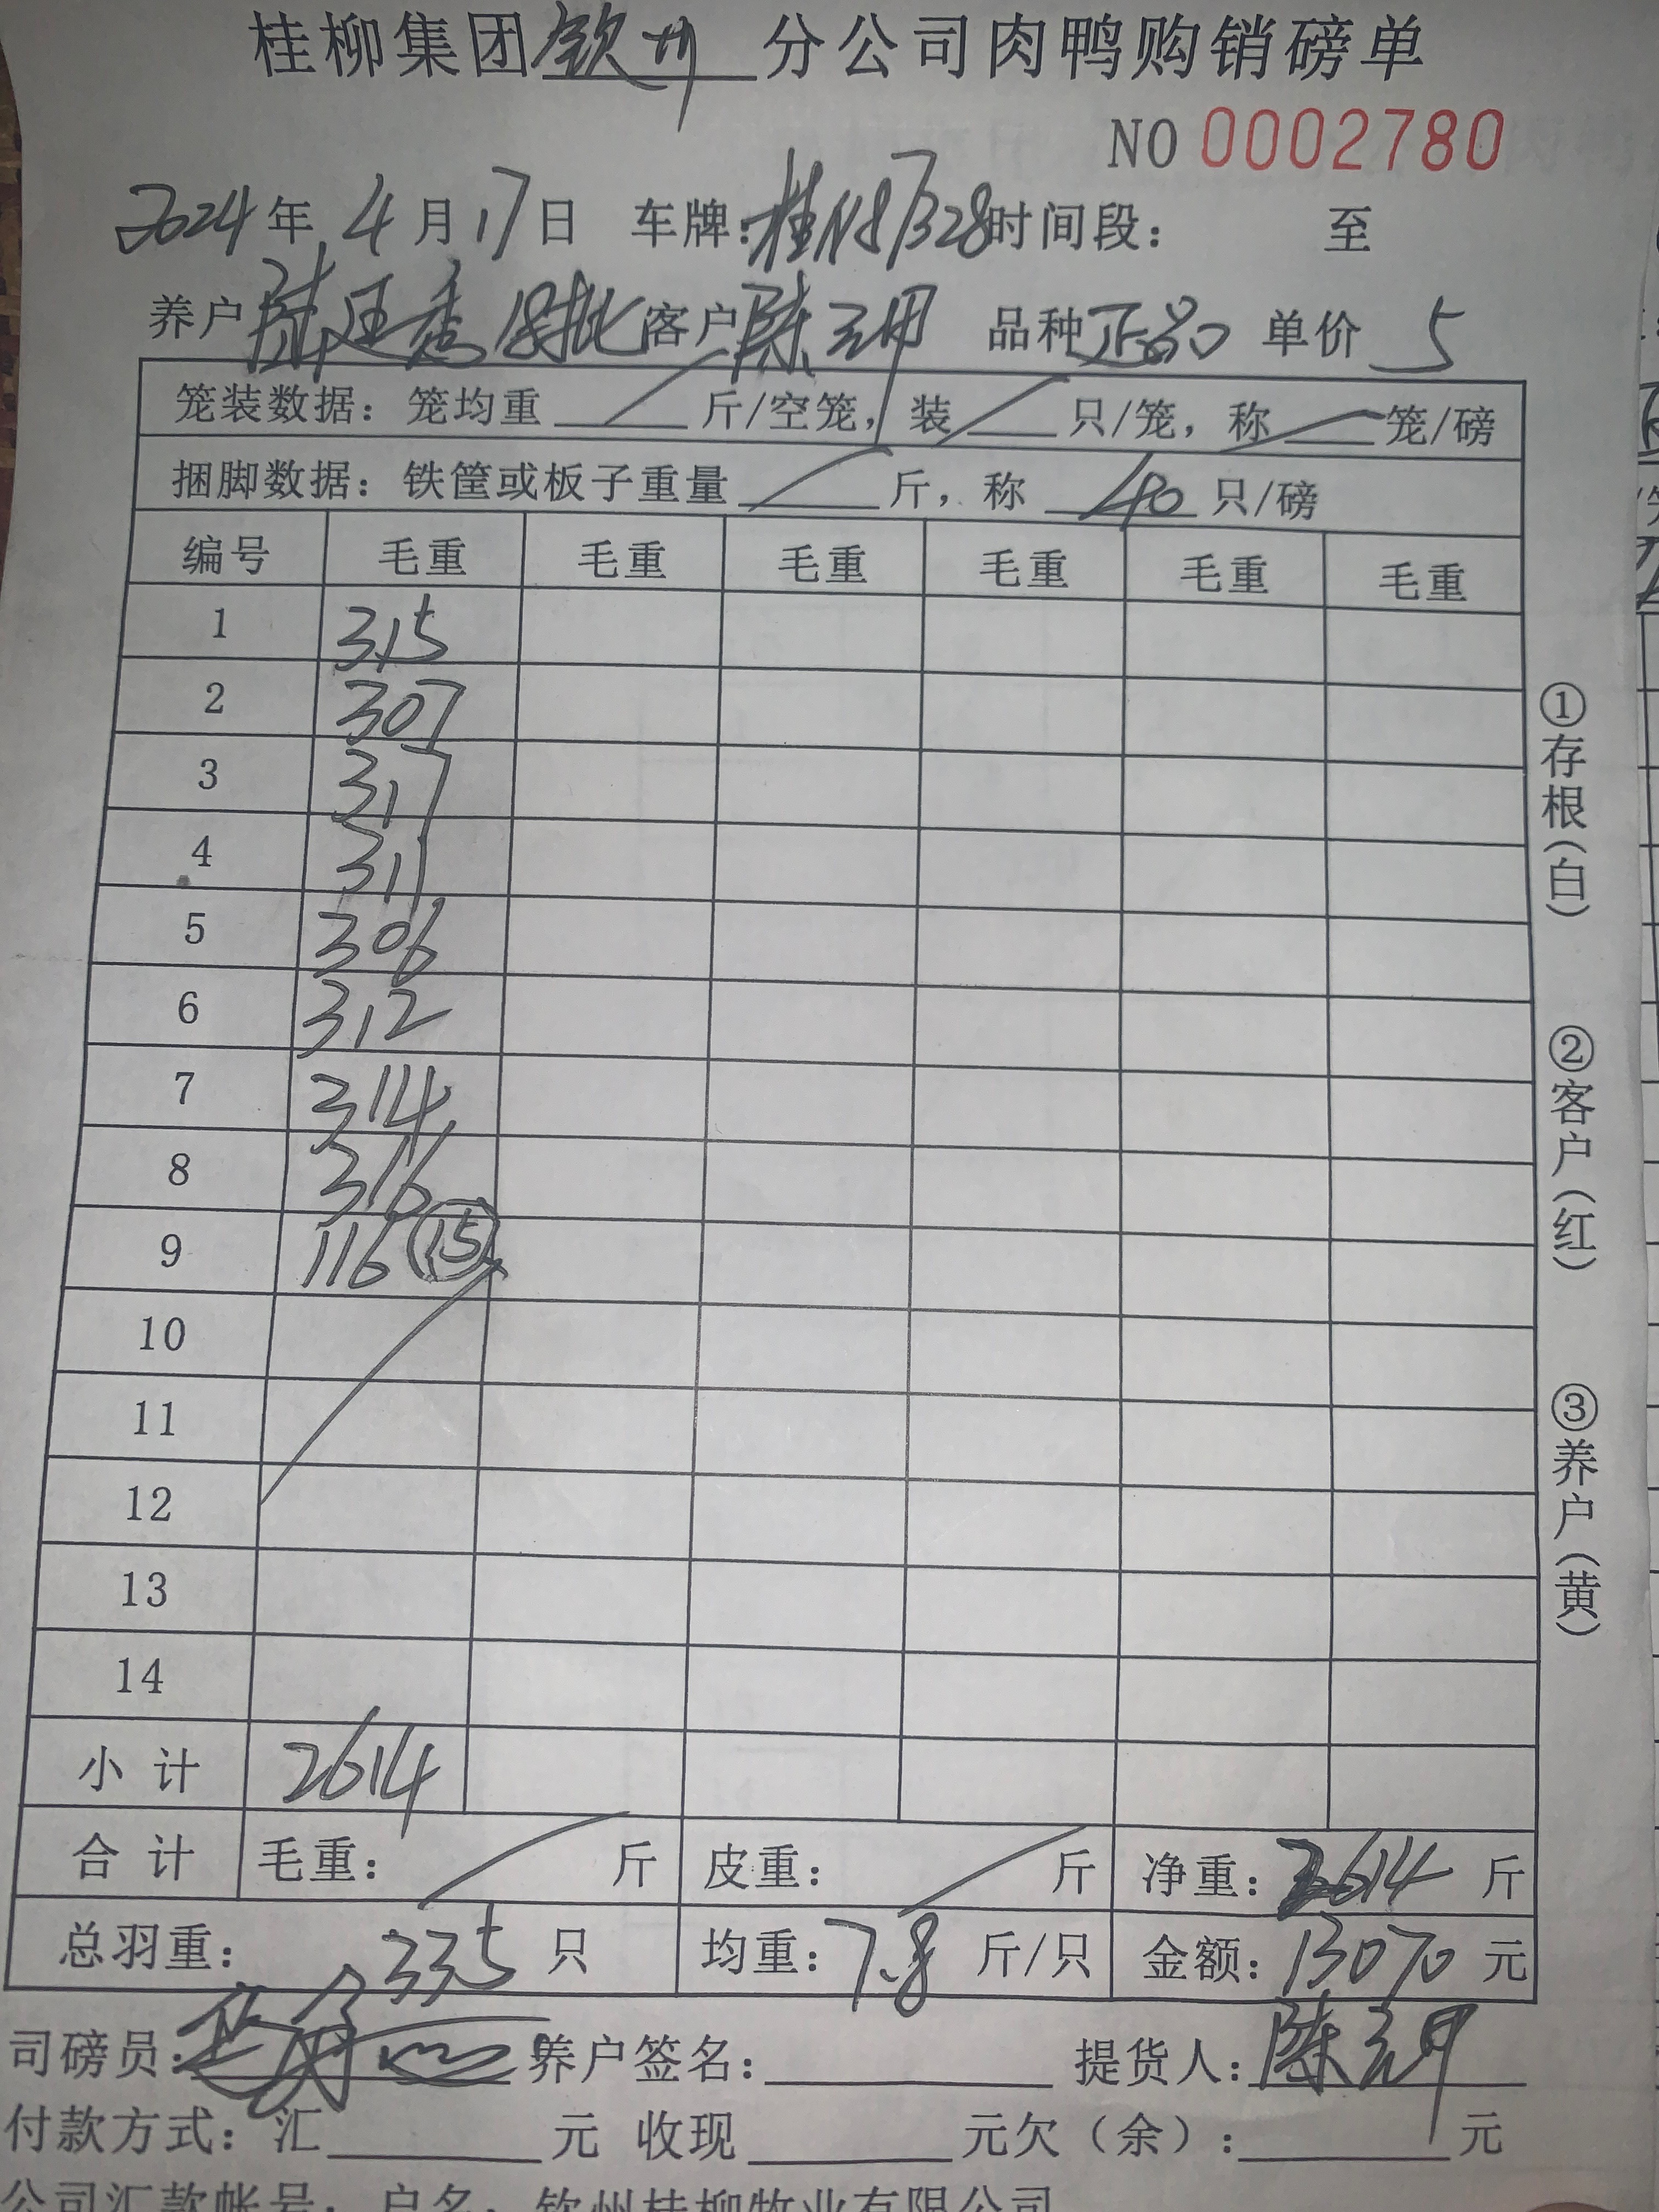 桂柳集团钦州分公司肉鸭购销磅单
NO 0002780
2024年4月17日 车牌:桂N87328时间段: 至
养户 陆廷秀18批 客户 陈元明 品种 正品 单价 5
笼装数据:笼均重 / 斤/空笼,装 / 只/笼,称 / 笼/磅
捆脚数据:铁筐或板子重量 / 斤,称 40 只/磅
编号 毛重 毛重 毛重 毛重 毛重 毛重
1 315
2 307
3 317
4 311
5 306
6 312
7 314
8 316
9 116 15
10
11
12
13
14
小计 2614
合计 毛重: / 斤 皮重: / 斤 净重:2614 斤
总羽重: 335 只 均重:7.8 斤/只 金额:13070 元
司磅员: 养户签名: 提货人:陈元明
付款方式:汇 元 收现 元欠(余): 元
公司汇款帐号:户名:钦州桂柳牧业有限公司
①存根(白)
②客户(红)
③养户(黄)